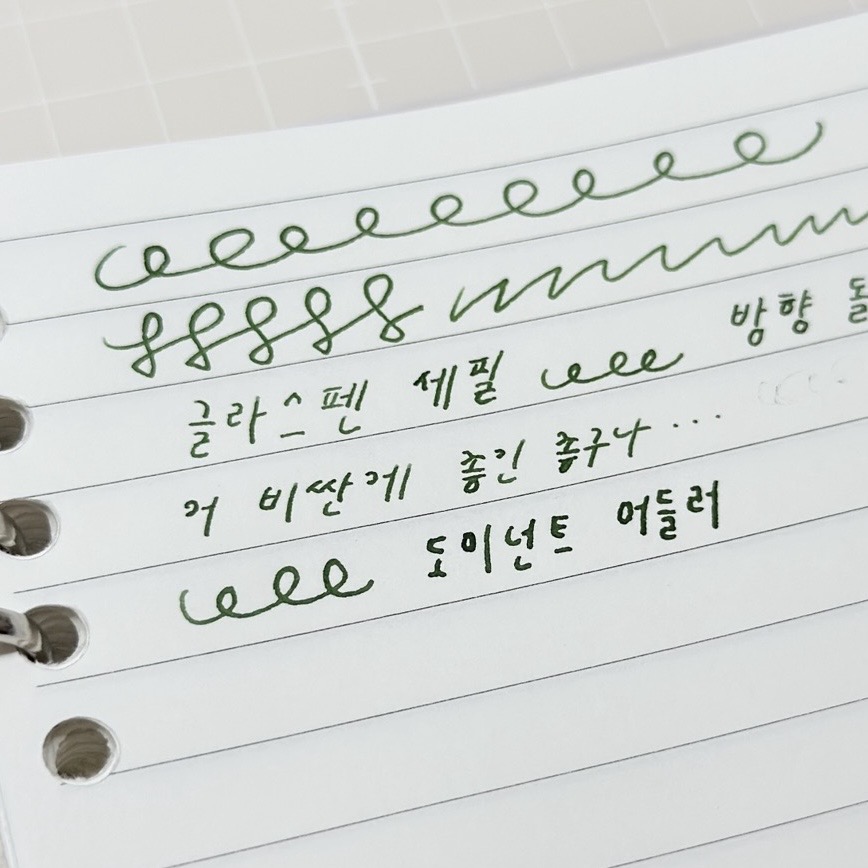 글라스펜 세필 방향 돌
어 비싼게 좋긴 좋구나...
도미넌트 머들러